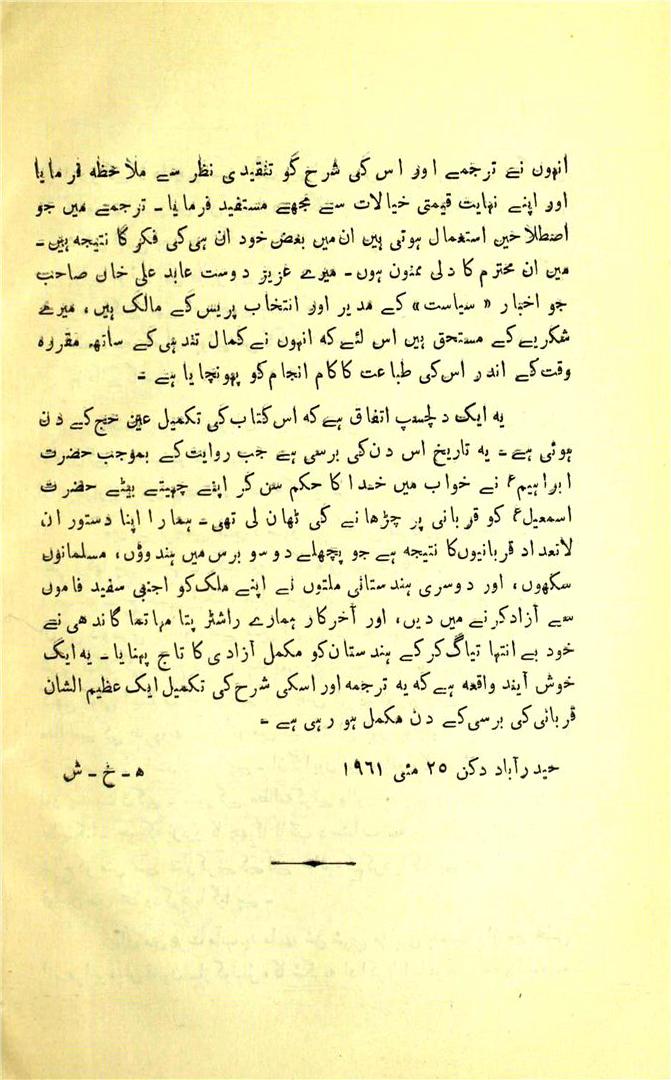 انہوں نے ترجمے اور اس کی شرح کو تنقیدی نظر سے ملاحظہ فرمایا
اور اپنے نہایت قیمتی خیالات سے مجھے مستفید فرمایا۔ ترجمے میں جو
اصطلاحیں استعمال ہوتی ہیں ان میں بعض خود ان ہی کی فکر کا نتیجہ ہیں۔
میں ان محترم کا دلی ممنون ہوں۔ میرے عزیز دوست عابد علی خاں صاحب
جو اخبار «سیاست» کے مدیر اور انتخاب پریس کے مالک ہیں، میرے
شکریے کے مستحق ہیں اس لئے کہ انہوں نے کمال تندہی کے ساتھ مقررہ
وقت کے اندر اس کی طباعت کا کام انجام کو پہونچایا ہے۔
یہ ایک دلچسپ اتفاق ہے کہ اس کتاب کی تکمیل عین حج کے دن
ہوئی ہے۔ یہ تاریخ اس دن کی برسی ہے جب روایت کے بموجب حضرت
ابراہیمؑ نے خواب میں خدا کا حکم سن کر اپنے چہیتے بیٹے حضرت
اسمعیلؑ کو قربانی پر چڑھانے کی ٹھان لی تھی۔ ہمارا اپنا دستور ان
لاتعداد قربانیوں کا نتیجہ ہے جو پچھلے دو سو برس میں ہندوؤں، مسلمانوں
سکھوں، اور دوسری ہندستانی ملتوں نے اپنے ملک کو اجنبی سفید فاموں
سے آزاد کرنے میں دیں، اور آخرکار ہمارے راشٹر پتا مہاتما گاندھی نے
خود بے انتہا تیاگ کر کے ہندستان کو مکمل آزادی کا تاج پہنایا۔ یہ ایک
خوش آیند واقعہ ہے کہ یہ ترجمہ اور اسکی شرح کی تکمیل ایک عظیم الشان
قربانی کی برسی کے دن مکمل ہو رہی ہے۔
حیدرآباد دکن ۲۵ مئی ۱۹۶۱ ھ۔ خ۔ ش